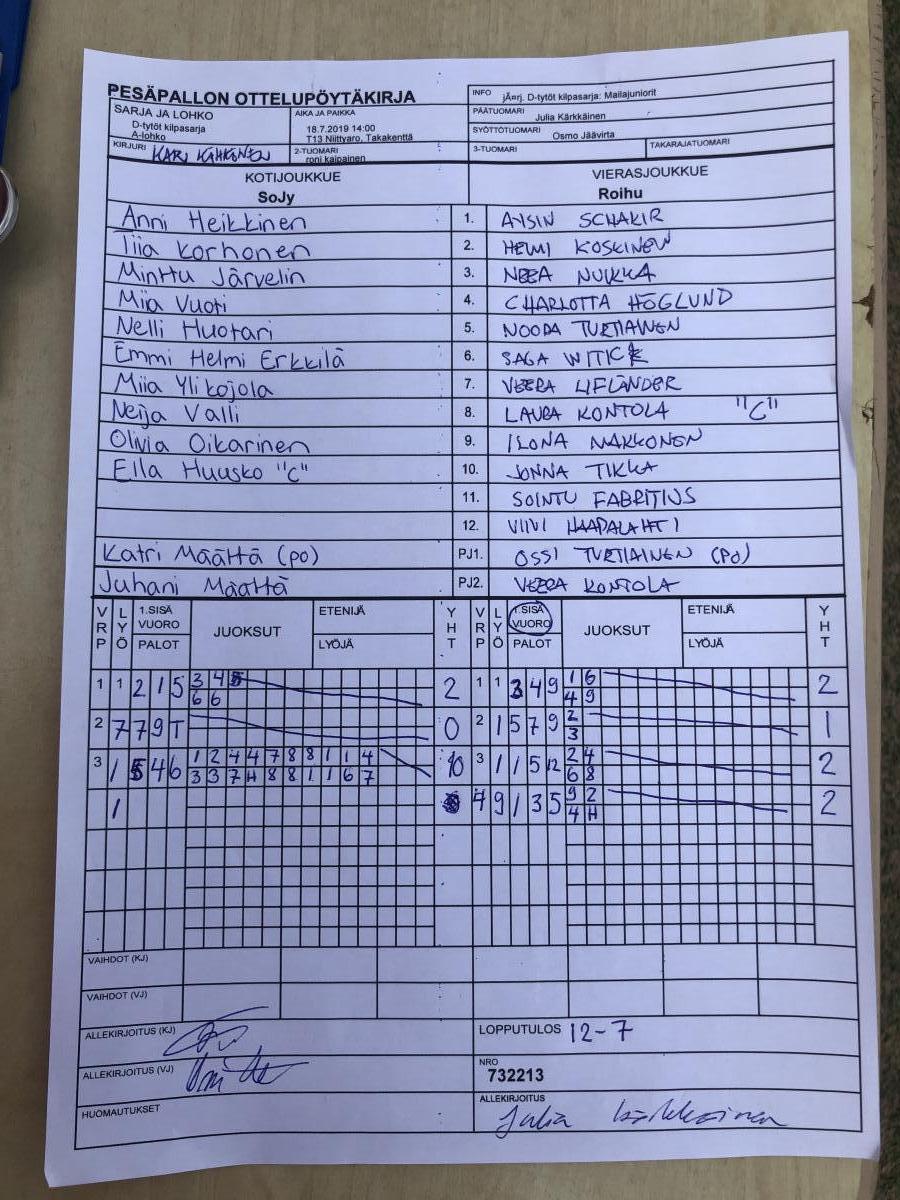 PESÄPALLON OTTELUPÖYTÄKIRJA
INFO jÃ¤rj. D-tytöt kilpasarja: Mailajuniorit
SARJA JA LOHKO
D-tytöt kilpasarja
A-lohko
AIKA JA PAIKKA
18.7.2019 14:00
T13 Niittyaro, Takakenttä
PÄÄTUOMARI Julia Kärkkäinen
SYÖTTÖTUOMARI Osmo Jäävirta
KIRJURI KARI KÄHKÖNEN
2-TUOMARI
roni kaipainen
3-TUOMARI
TAKARAJATUOMARI
KOTIJOUKKUE
SoJy
VIERASJOUKKUE
Roihu
Anni Heikkinen 1. AYSIN SCHAKIR
Tiia Korhonen 2. HELMI KOSKINEN
Minttu Järvelin 3. NEEA NUIKKA
Miia Vuoti 4. CHARLOTTA HÖGLUND
Nelli Huotari 5. NOORA TURTIAINEN
Emmi Helmi Erkkilä 6. SAGA WITICK
Miia Ylikojola 7. VEERA LIFLÄNDER
Neija Valli 8. LAURA KONTOLA "C"
Olivia Oikarinen 9. ILONA MAKKONEN
Eila Huusko "C" 10. JONNA TIKKA
11. SOINTU FABRITIUS
12. VIIVI HAAPALAHTI
Katri Määttä (PO) PJ1. OSSI TURTIAINEN (PO)
Juhani Määttä PJ2. VEERA KONTOLA
VRP LYÖ 1.SISÄ VUORO PALOT JUOKSUT ETENIJÄ LYÖJÄ YHT VRP LYÖ 1.SISÄ VUORO PALOT JUOKSUT ETENIJÄ LYÖJÄ YHT
1 1 2 1 5 3 4 2 1 1 3 4 9 1 6 2
6 6 4 9
2 7 7 9 T 0 2 1 5 7 9 2 1
3
3 1 5 4 6 1 2 4 4 7 8 8 1 1 4 10 3 1 1 5 12 2 4 2
3 3 7 H 8 8 1 1 6 7 6 8
1 4 9 1 3 5 9 2 2
4 H
VAIHDOT (KJ)
VAIHDOT (VJ)
ALLEKIRJOITUS (KJ)
LOPPUTULOS 12-7
ALLEKIRJOITUS (VJ)
NRO
732213
HUOMAUTUKSET
ALLEKIRJOITUS
Julia Kärkkäinen